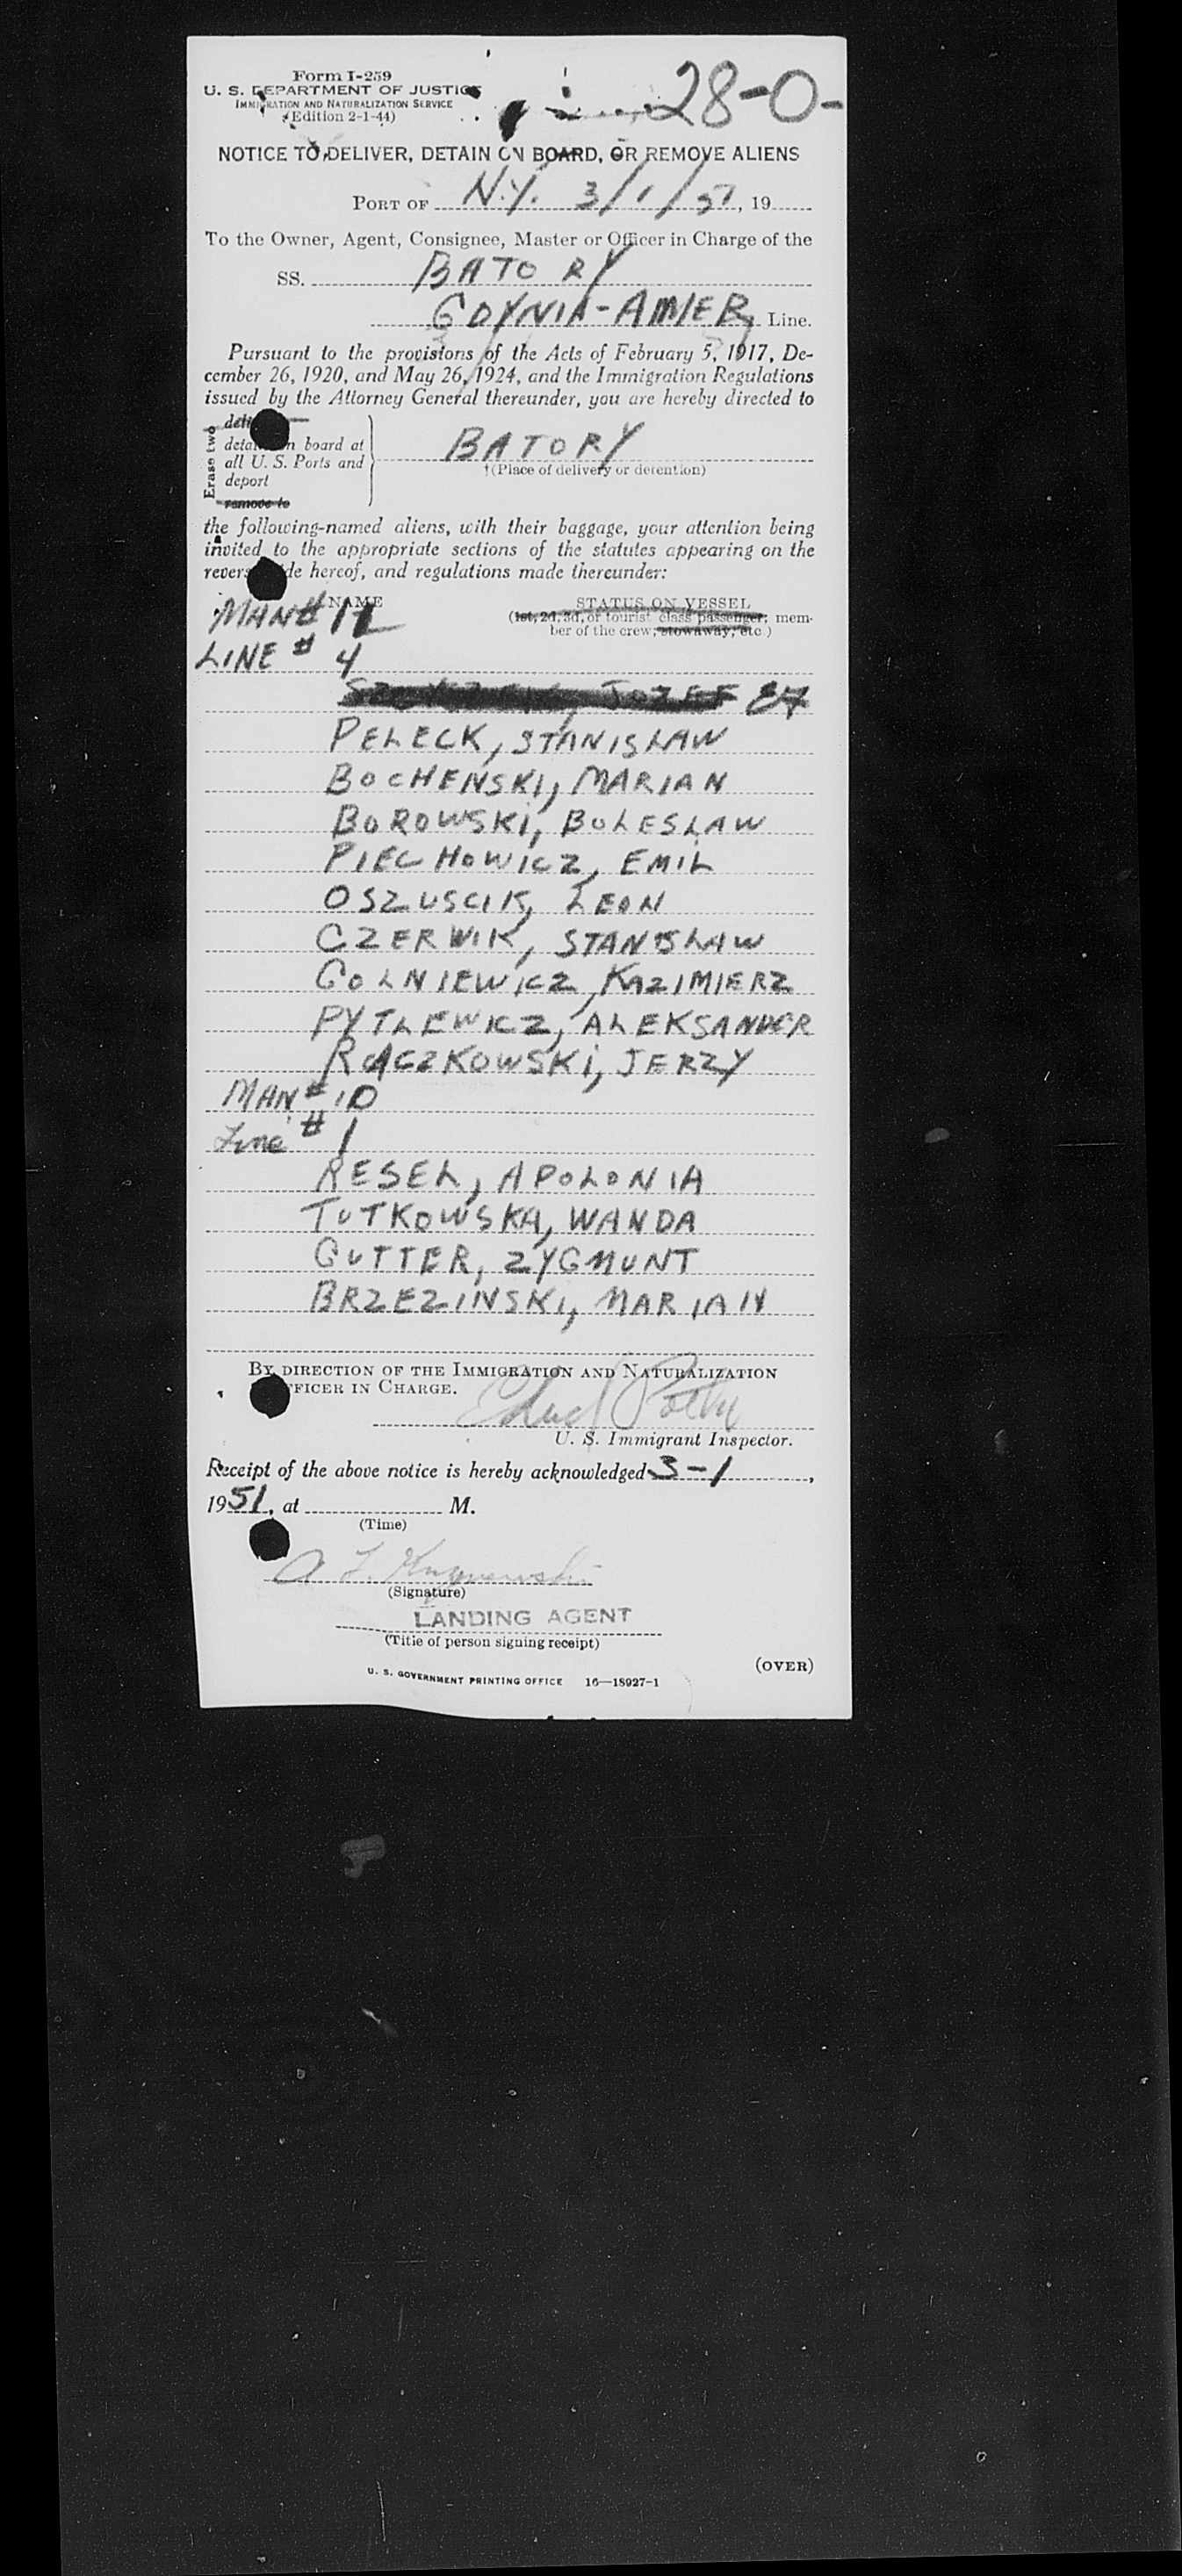 Form I-259
U. S. DEPARTMENT OF JUSTICE
IMMIGRATION AND NATURALIZATION SERVICE
(Edition 2-1-44)
28-0-
NOTICE TO DELIVER, DETAIN ON BOARD, OR REMOVE ALIENS
PORT OF N.Y. 3/1/51, 19
To the Owner, Agent, Consignee, Master or Officer in Charge of the
SS. BATORY
GDYNIA-AMER Line.
Pursuant to the provisions of the Acts of February 5, 1917, De-
cember 26, 1920, and May 26, 1924, and the Immigration Regulations
issued by the Attorney General thereunder, you are hereby directed to
Erase two
board at
all U. S. Ports and
deport
remove to
BATORY
†(Place of delivery or detention)
the following-named aliens, with their baggage, your attention being
invited to the appropriate sections of the statutes appearing on the
hereof, and regulations made thereunder:
NAME STATUS ON VESSEL
(1st, 2d, 3d, or tourist class passenger; mem-
ber of the crew; stowaway, etc.)
MAN #
LINE # 4
JOZEF 27
PELECK, STANISLAW
BOCHENSKI, MARIAN
BOROWSKI, BOLESLAW
PIECHOWICZ, EMIL
OSZUSCIK, LEON
CZERWIK, STANISLAW
GOLNIEWICZ, KAZIMIERZ
PYTLEWICZ, ALEKSANDER
RACZKOWSKI, JERZY
MAN # 10
Line # 1
RESEL, APOLONIA
TUTKOWSKA, WANDA
GUTTER, ZYGMUNT
BRZEZINSKI, MARIAN
BY DIRECTION OF THE IMMIGRATION AND NATURALIZATION
OFFICER IN CHARGE.
U. S. Immigrant Inspector.
Receipt of the above notice is hereby acknowledged 3-1,
1951, at M.
(Time)
(Signature)
LANDING AGENT
(Title of person signing receipt)
(OVER)
U. S. GOVERNMENT PRINTING OFFICE 16—18927-1